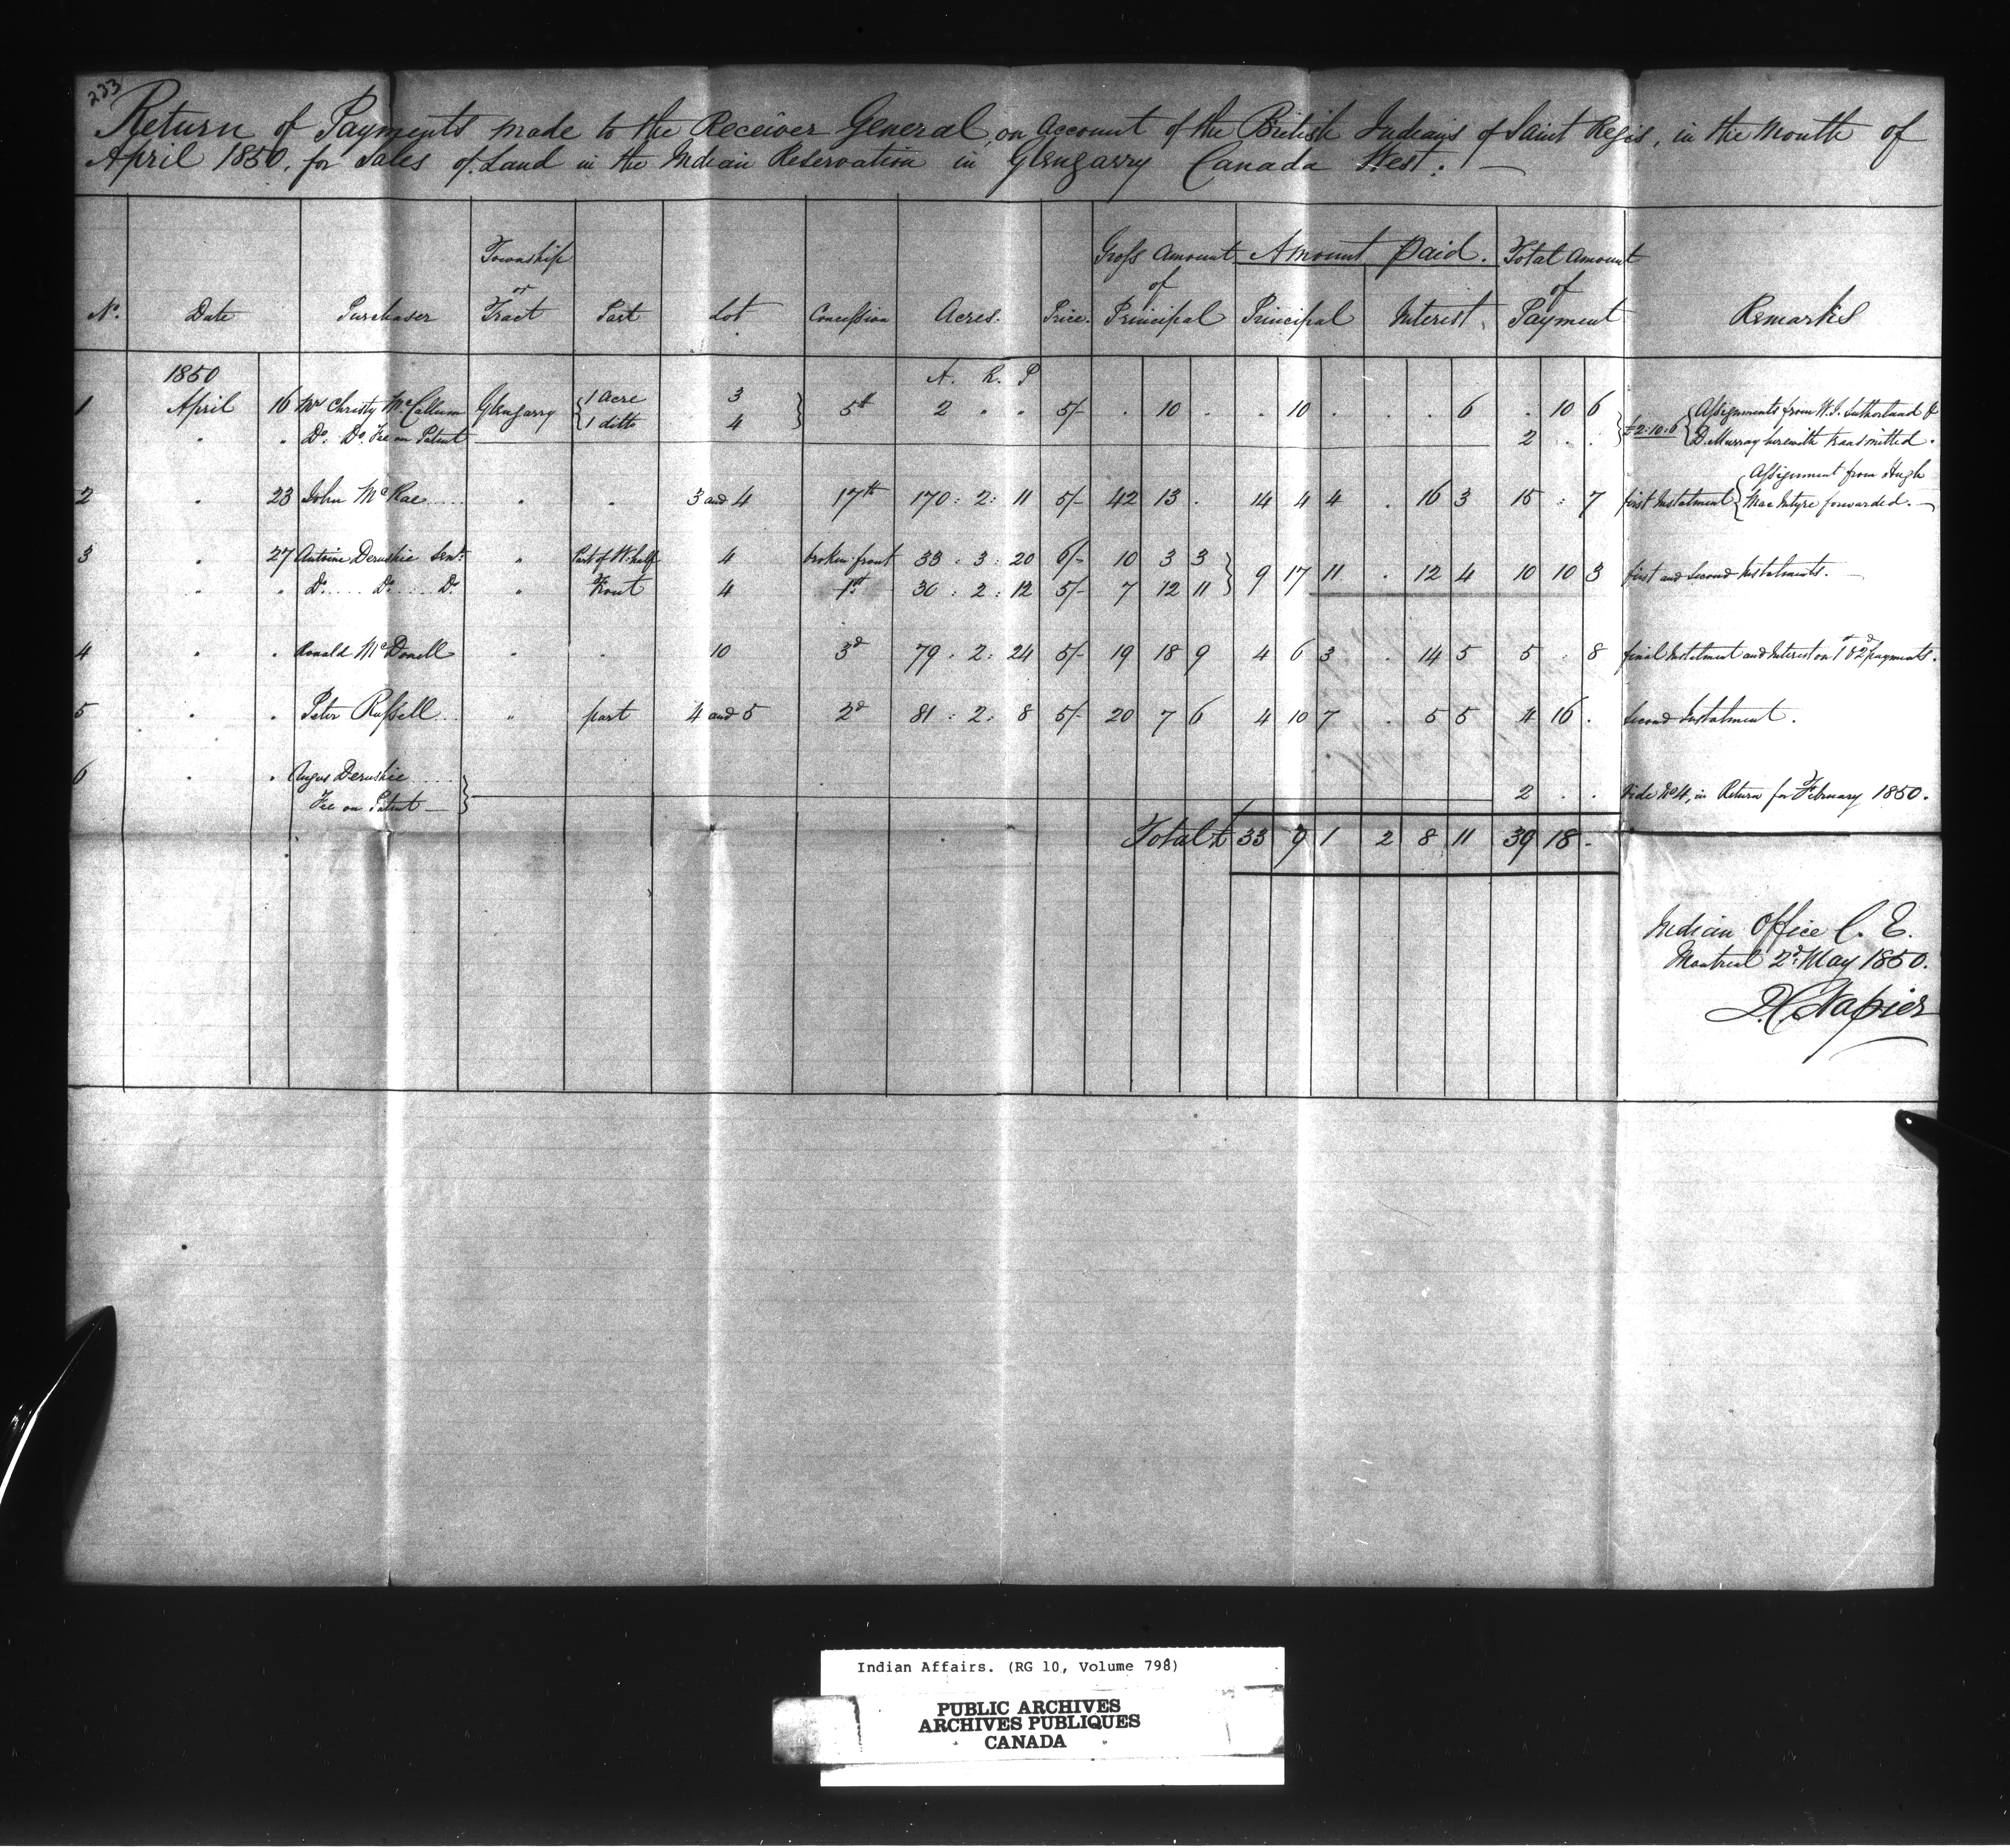 233
Return of Payments made to the Receiver General, on Account of the British Indians of Saint Regis, in the Month of
April 1850, for Sales of Land in the Indian Reservation in Glengarry Canada West. —
No. Date Purchaser Township or Tract Part Lot Concession Acres. Price. Gross Amount of Principal Amount Paid. Principal Interest. Total Amount of Payment Remarks
1850 A. R. P
1 April 16 Mr Christy McCallum Glengarry { 1 Acre 3 } 5th 2 . . 5/- . 10 . . 10 . . . 6 . 10 6 } £2:10:6 { Assignments from W. J. Sutherland &
{ 1 ditto 4
" " Do. Do. Fee on Patent 2 . . D. Murray herewith transmitted.
2 " 23 John McRae " . 3 and 4 17th 170 : 2 : 11 5/- 42 13 . 14 4 4 . 16 3 15 : 7 first Instalment { Assignment from Hugh
Mac Intyre forwarded. —
3 " 27 Antoine Deruskie Senr. " Part of W. half 4 broken front 33 : 3 : 20 6/- 10 3 3 } 9 17 11 . 12 4 10 10 3 first and second Instalments. —
" " Do. Do. Do. " Front 4 1st 30 : 2 : 12 5/- 7 12 11
4 " " Ronald McDonell " . 10 3d 79 . 2 : 24 5/- 19 18 9 4 6 3 . 14 5 5 . 8 final Instalment and Interest on 1st & 2d payments.
5 " " Peter Russell " part 4 and 5 2d 81 : 2 : 8 5/- 20 7 6 4 10 7 . 5 5 4 16 . Second Instalment.
6 " " Angus Deruskie
Fee on Patent — } 2 . . Vide No 4, in Return for February 1850.
Total £ 33 9 1 2 8 11 39 18 -
Indian Office C. E.
Montreal 2d May 1850.
D. C. Napier
Indian Affairs. (RG 10, Volume 798)
PUBLIC ARCHIVES
ARCHIVES PUBLIQUES
CANADA